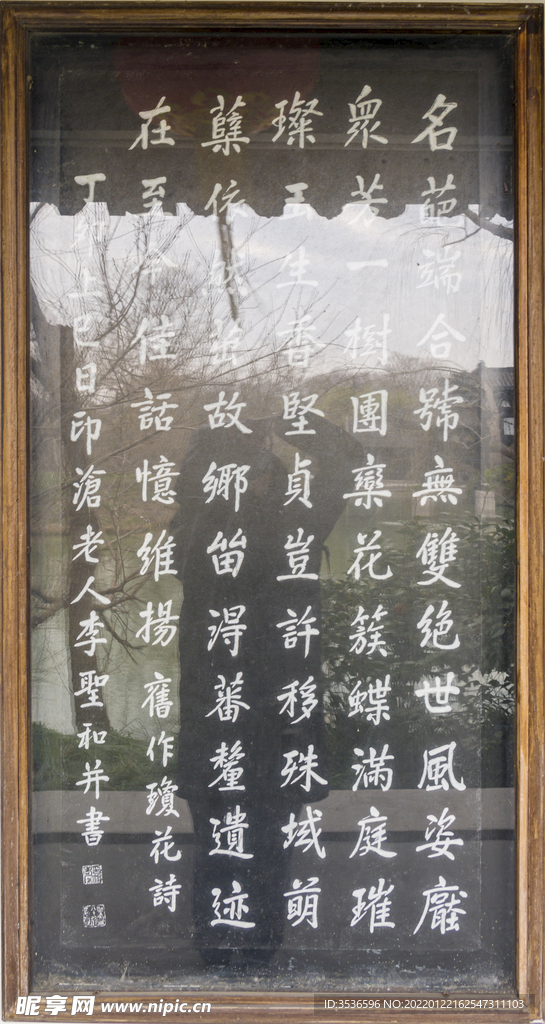 名葩端合號無雙絕世風姿
眾芳一樹團欒花簇蝶滿庭璀
璨玉生香堅貞豈許移殊域萌
蘖依然茁故鄉留得蕃釐遺迹
在至今佳話憶維揚 舊作瓊花詩
丁卯上巳日印滄老人李聖和并書
昵享网 www.nipic.cn
ID:3536596 NO:20220122162547311103